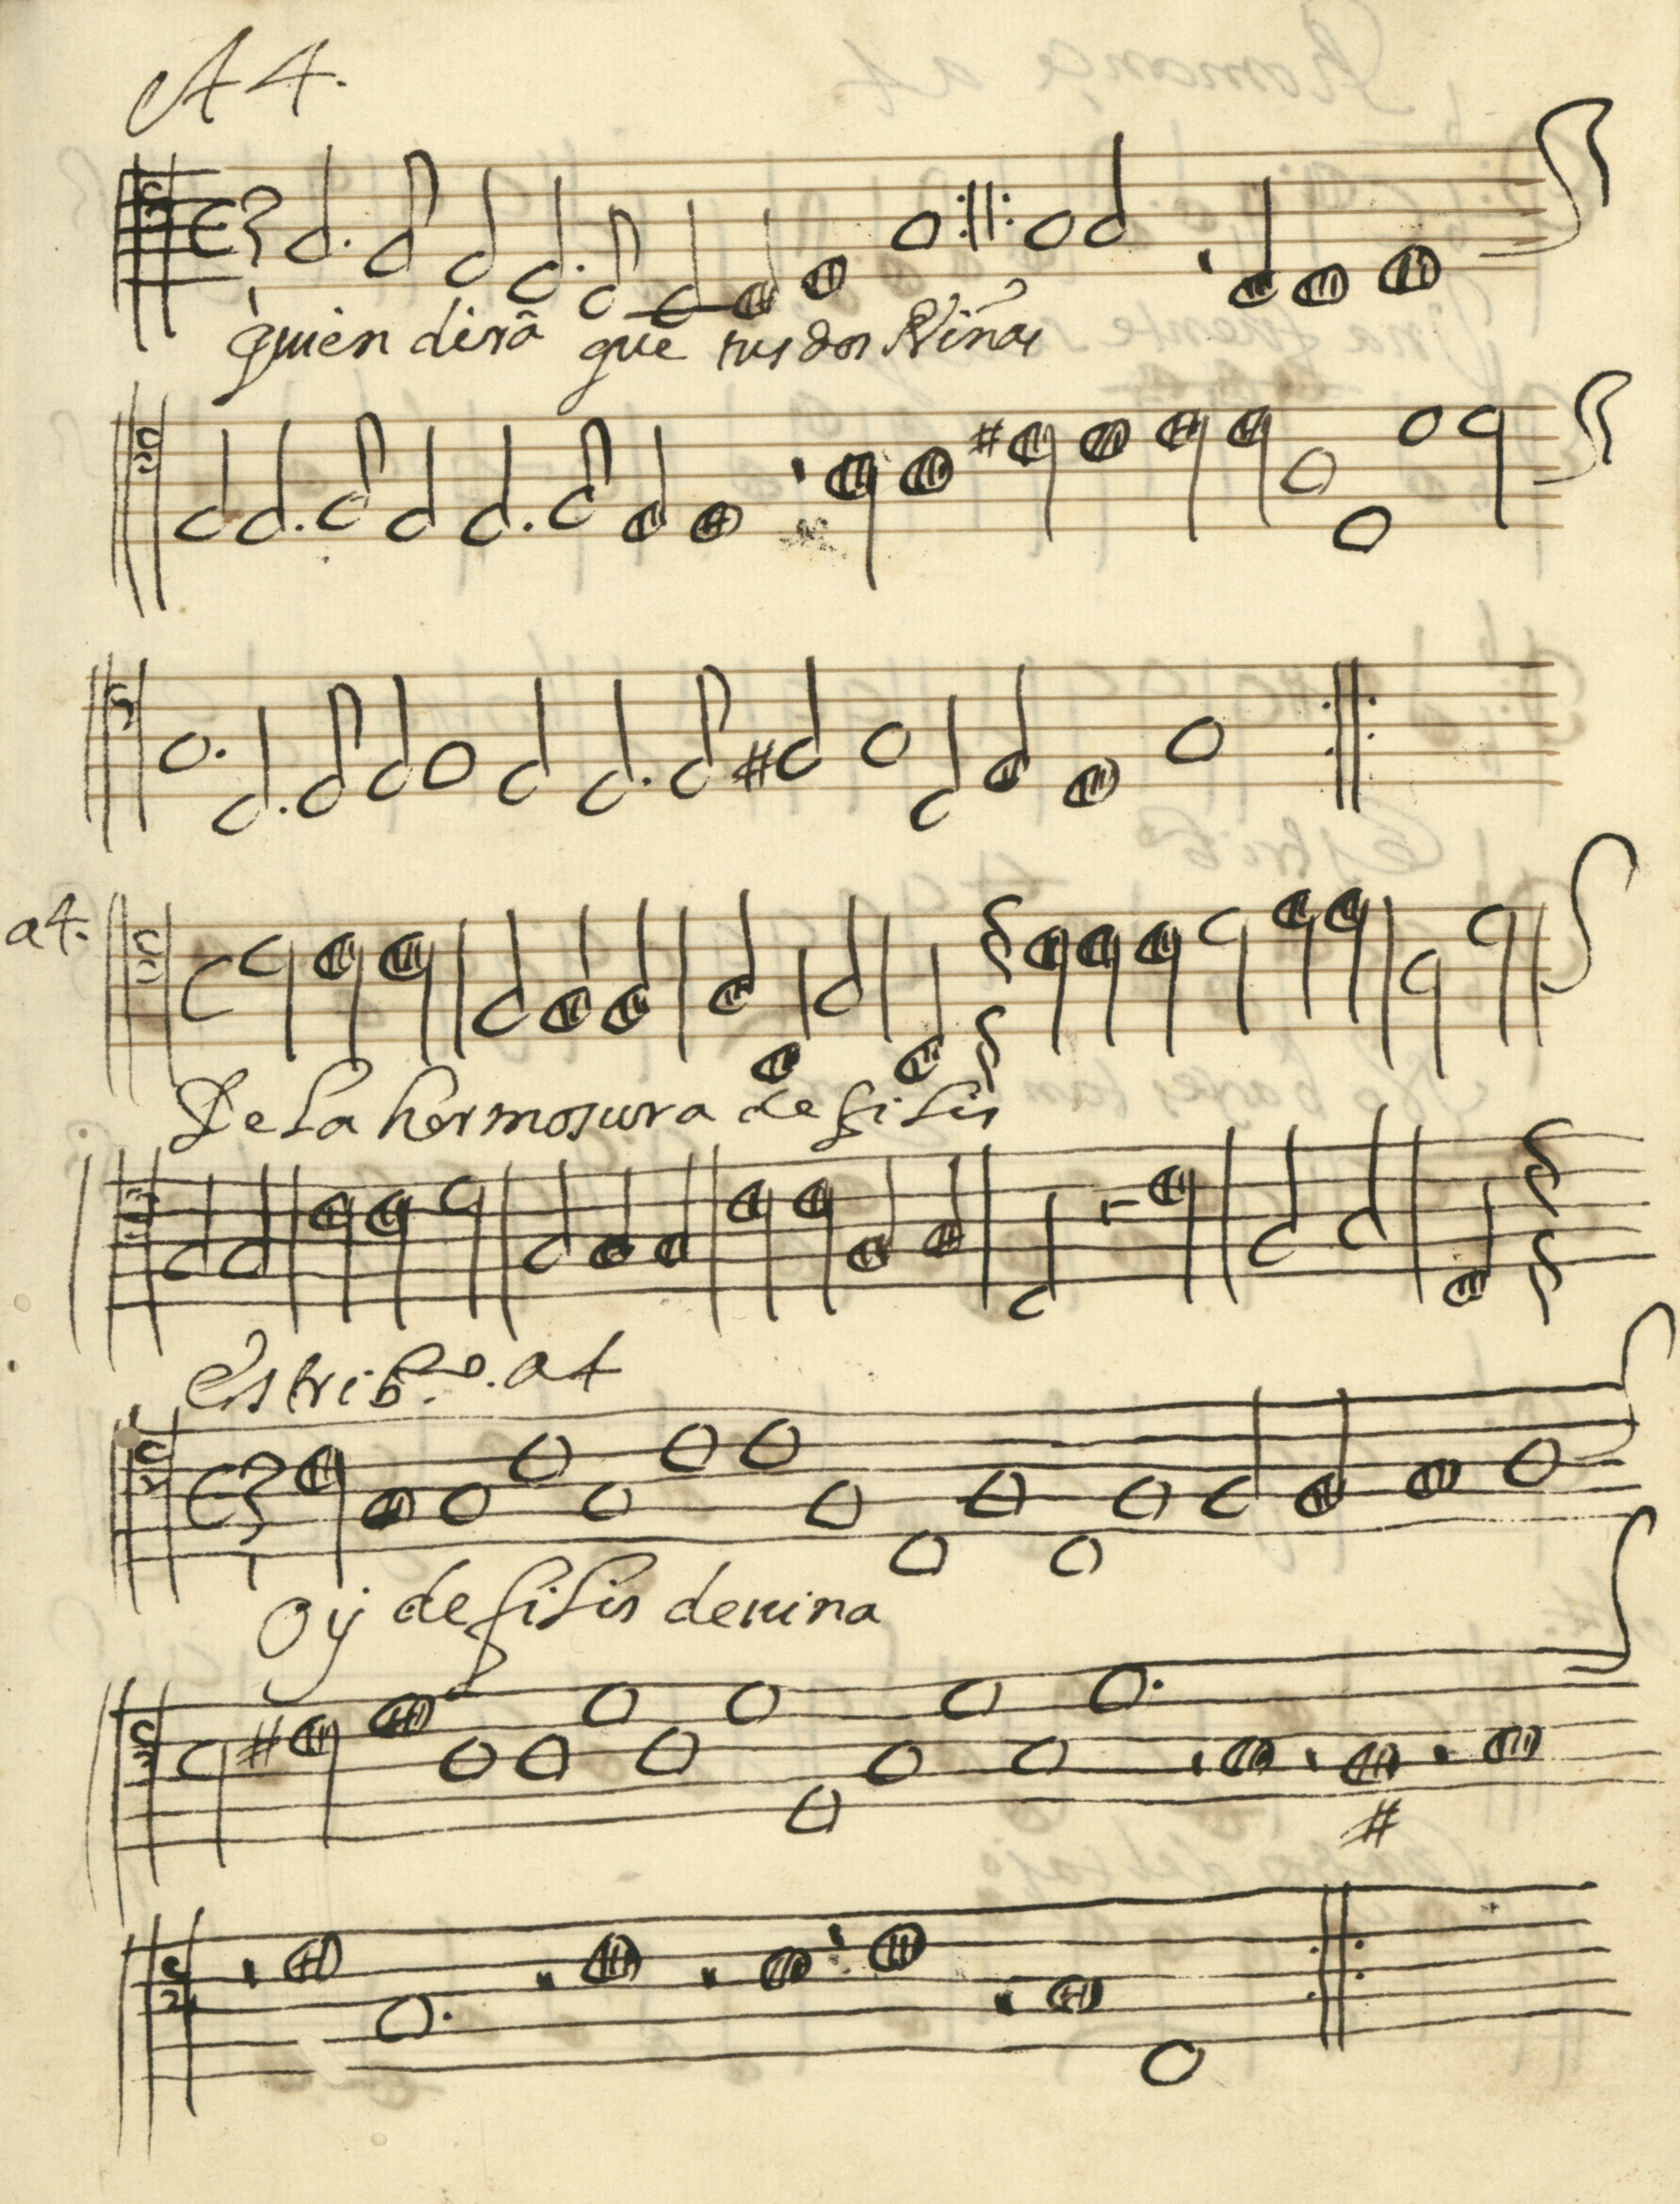 A 4.
quien dirâ que tus dos Niñas
a4.
De la hermosura de filis
estribº. a4
oy de filis